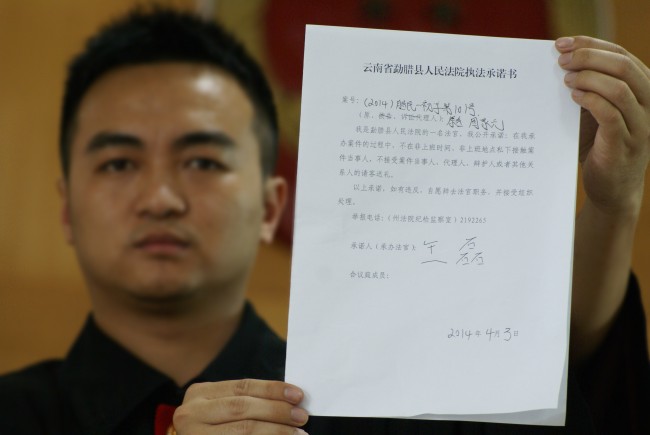 云南省勐腊县人民法院执法承诺书
案号：(2014)腊民一初字第101号
我是勐腊县人民法院的一名法官，我公开承诺：在我承
办案件的过程中，不在非上班时间、非上班地点私下接触案
件当事人，不接受案件当事人、代理人、辩护人或者其他关
系人的请客送礼。
以上承诺，如有违反，自愿辞去法官职务，并接受组织
处理。
举报电话：（州法院纪检监察室）2192265
承诺人（承办法官）
合议庭成员：
2014年4月3日